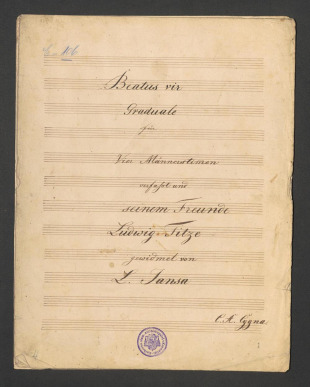 106
Beatus vir
Graduale
für
Vier Männerstimen
verfaßt und
seinem Freunde
Ludwig Titze
gewidmet von
L. Jansa